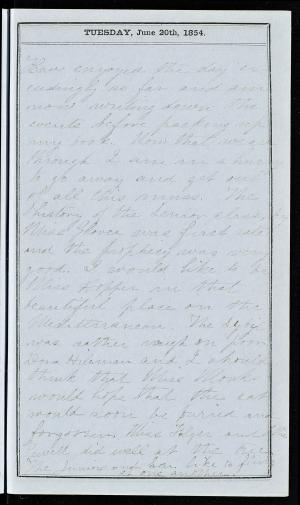 TUESDAY, June 20th, 1854.
Have enjoyed the day ex
ceedingly so far and am
now writing down the
events before packing up
my book. Now that we are
through I am in a hurry
to go away and get out
of all this. The
history of the Senior class, by
Miss Glover was first rate
and the prophecy was very
good. I would like to be
Miss Hopper in that
beautiful place on the
Mediterranean. The
was rather rough on poor
Dora and I should
think that Miss Monk
would hope that the cat
would soon be buried and
forgotten. Miss Folger and
did well at the
The Juniors and like to give
it one another.